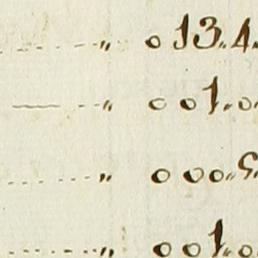 " 0 13 " 4
" 0 0 1 " 0
" 0 0 0 "
" 0 0 1 " 0